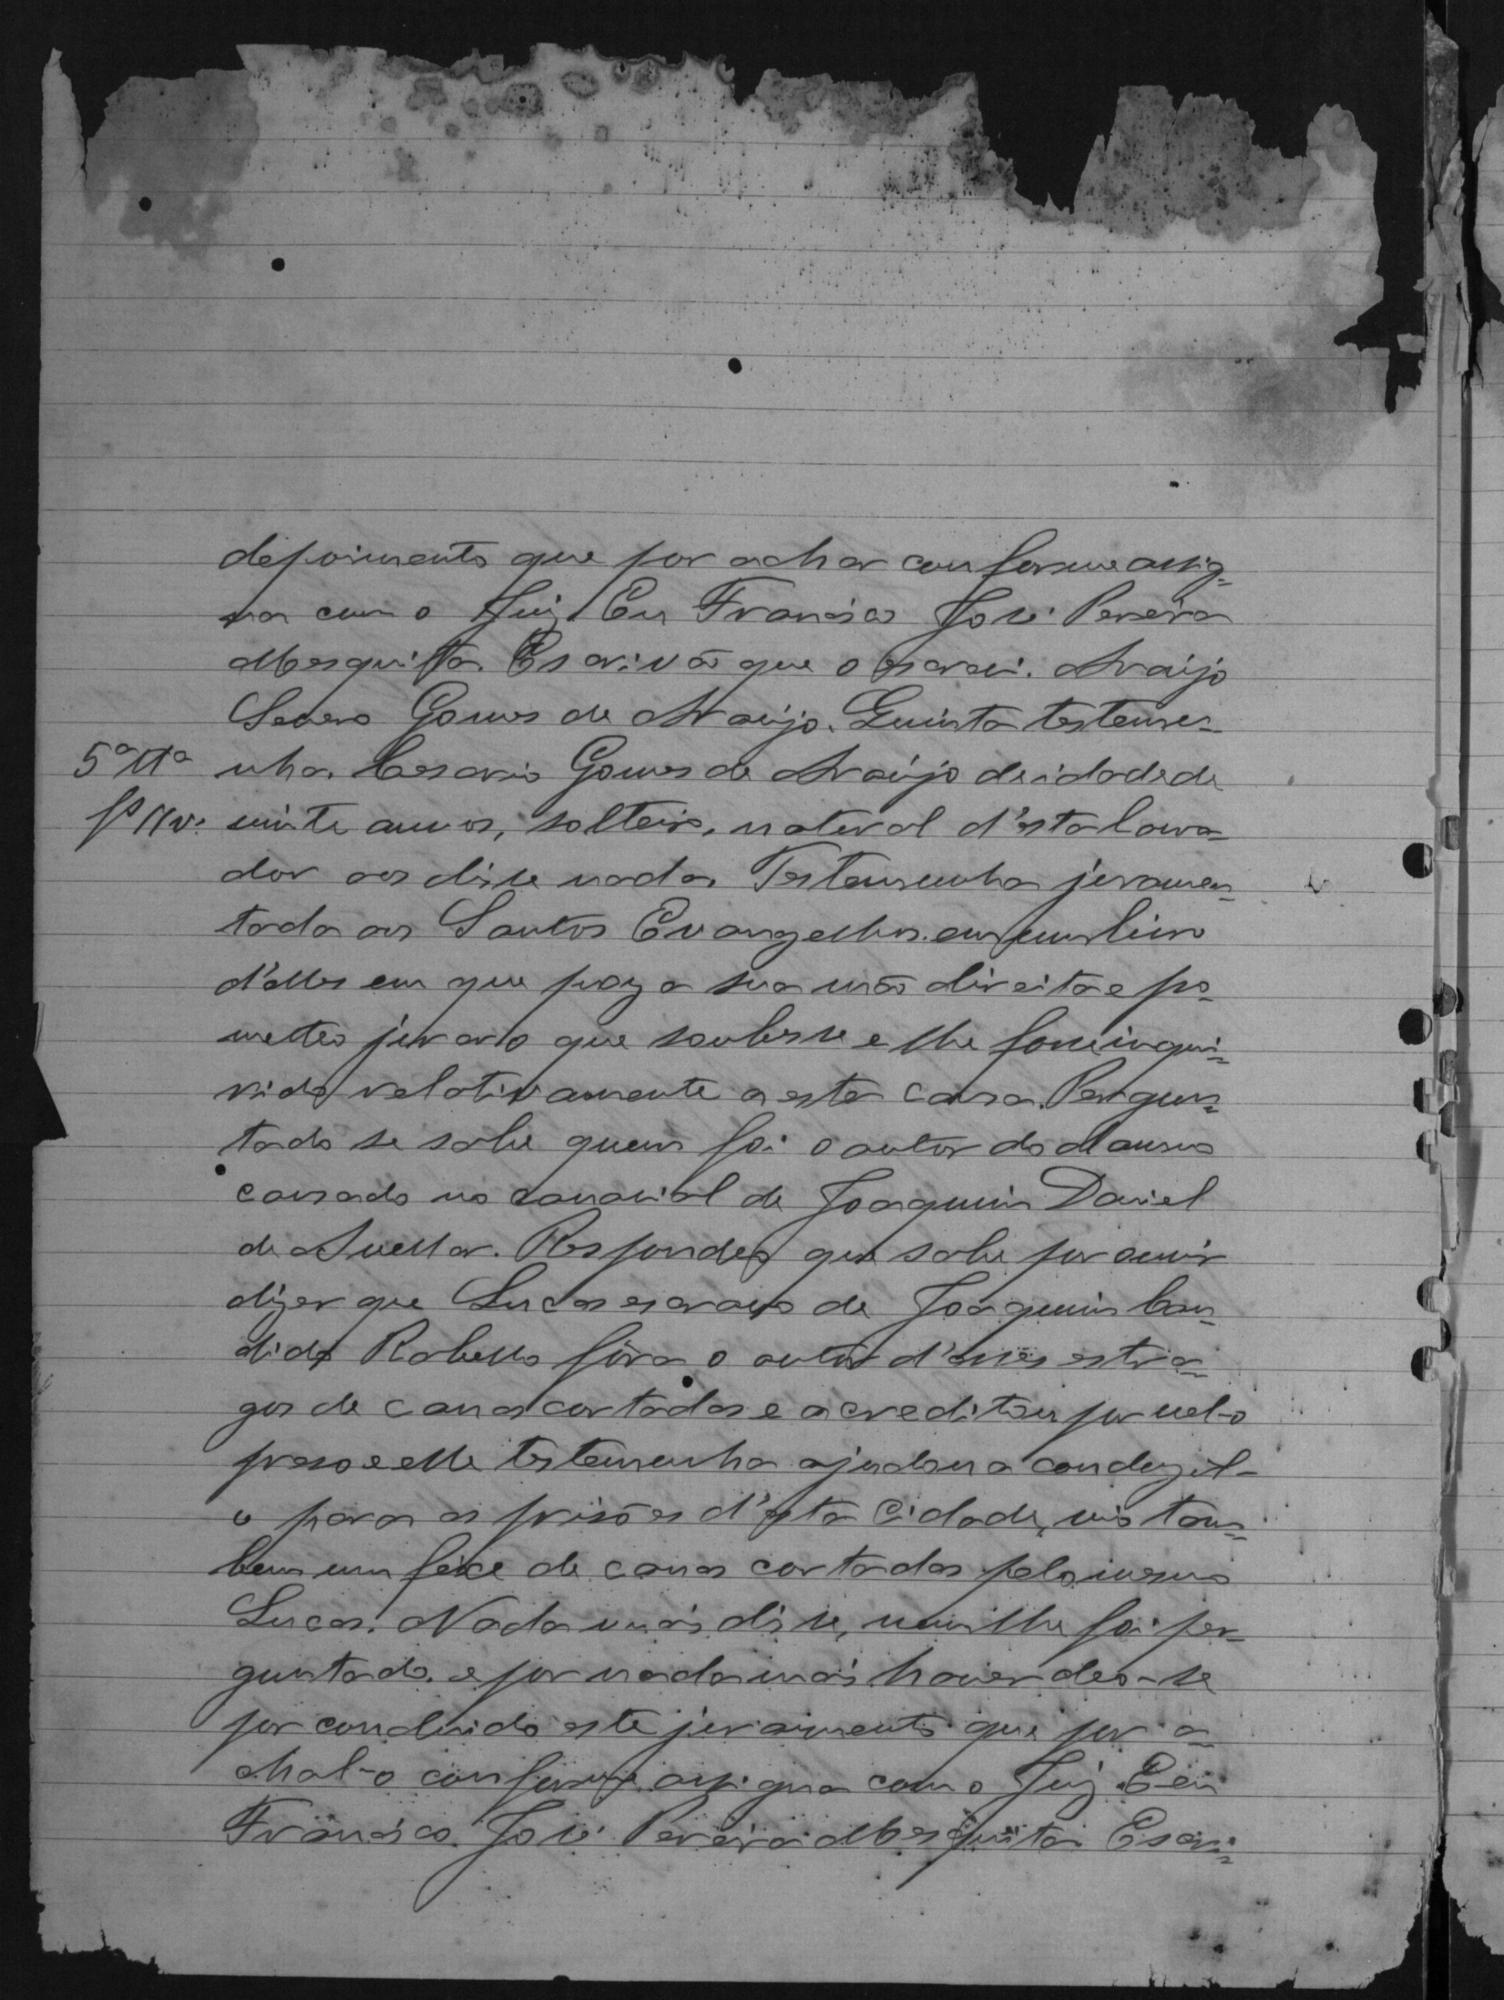 depoimento que por achar conforme assig-
na com o Juiz. Eu Francisco José Pereira
Mesquita. Escrivão que o escrevi. Araújo
Severo Gomes de Araújo. Quinta testemu-
5ª Ttª nha. Cesario Gomes de Araújo de idade de
vinte annos, solteiro, natural d'esta lavra-
dor aos disse nada. Testemunha juramen-
tada aos Santos Evangelhos em um livro
d'elles em que poz a sua mão direita e pro-
metteo jurar o que soubesse e lhe fosse inqui-
rido relativamente a esta causa. Pergun-
tado se sabe quem foi o autor do damno
causado no canavial de Joaquim Daniel
de Avellar. Respondeo que sabe por ouvir
dizer que Lucas escravo de Joaquim Can-
dido Rabello fora o autor d'esses estra-
gos de canas cortadas e acreditou por vel-o
preso e elle testemunha ajudou a conduzil-
o para as prisões d'esta Cidade, vio tam-
bem um feixe de canas cortadas pelo mesmo
Lucas. Nada mais disse, nem lhe foi per-
guntado. e por nada mais haver deo-se
por concluido este juramento que por a-
chal-o conforme assigna com o Juiz. Eu
Francisco José Pereira Mesquita Escri-